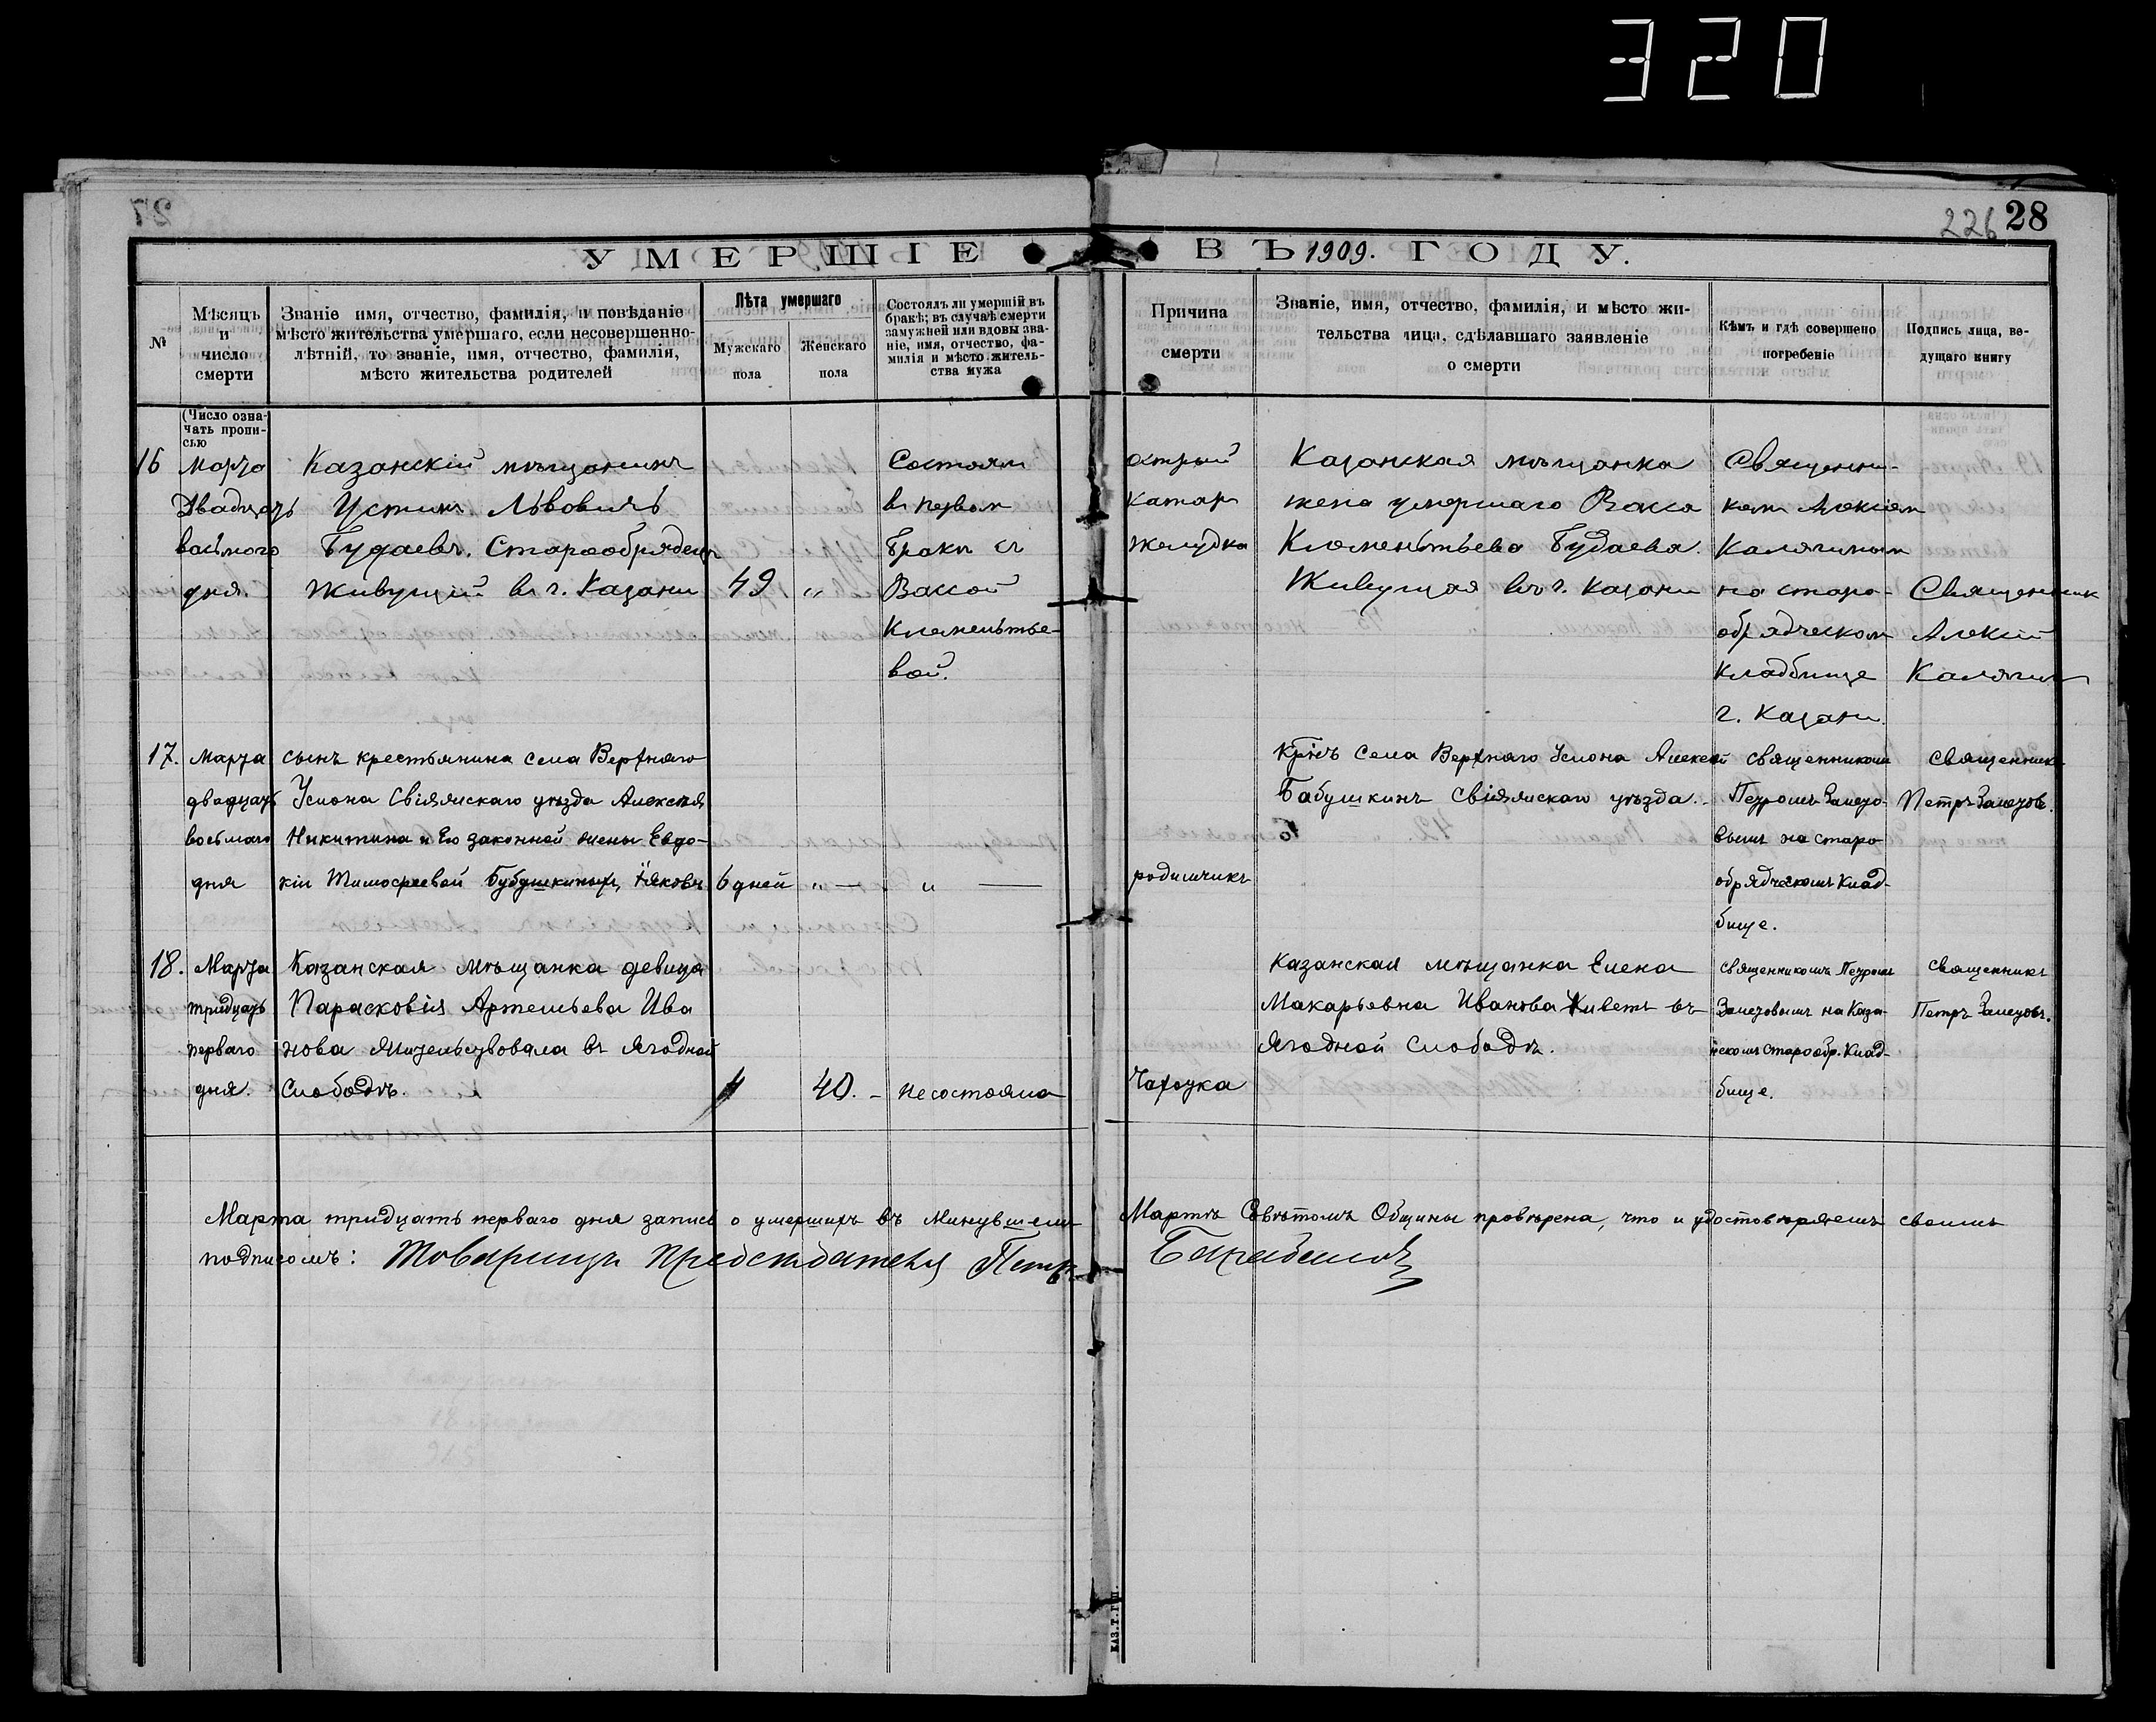 320
226 28
УМЕРШІЕ ВЪ 1909. ГОДУ.
№
Мѣсяцъ
и
число
смерти
Званіе имя, отчество, фамилія, и повѣданіе
мѣсто жительства умершаго, если несовершенно-
лѣтній, то званіе, имя, отчество, фамилія,
мѣсто жительства родителей
Лѣта умершаго
Мужскаго
пола
Женскаго
пола
Состоялъ ли умершій въ
бракѣ; въ случаѣ смерти
замужней или вдовы зва-
ніе, имя, отчество, фа-
милія и мѣсто житель-
ства мужа
Причина
смерти
Званіе, имя, отчество, фамилія, и мѣсто жи-
тельства лица, сдѣлавшаго заявленіе
о смерти
Кѣмъ и гдѣ совершено
погребеніе
Подпись лица, ве-
дущаго книгу
(Число озна-
чать пропи-
сью
16
Марта
Двадцать
восьмого
дня
Казанскій мѣщанинъ
Устинъ Львовичъ
Будаевъ. Старообрядецъ
Живущій въ г. Казани
49 "
Состоял
въ первом
бракѣ съ
Вассой
Клеменьтье-
вой.
острый
катар
желудка
Казанская мѣщанка
жена умершаго Васса
Клеменьтьева Будаева.
Живущая въ г. Казани
Священни-
ком Алексіем
Калягиным
на старо-
обрядческом
кладбище
г. Казани.
Священник
Алексій
Калягин
17.
Марта
двадцать
восьмаго
дня
сынъ крестьянина села Верхняго
Услона Свіяжскаго уѣзда Алексѣя
Никитина и Его законной жены Евдо-
кіи Тимофеевой Бубушкиных, Іяковъ
6 дней " — " —
родимчикъ
Кр-нъ села Верхняго Услона Алексей
Бабушкинъ Свіяжскаго уѣзда.
священникомъ
Петромъ Залето-
вымъ на старо
обрядческомъ Клад-
бище.
священникъ
Петръ Залетовъ.
18.
Марта
тридцать
перваго
дня.
Казанская мѣщанка девица
Парасковія Артемьева Ива
нова Жительствовала въ Ягодной
Слободѣ.
40. - не состояла
Чахотка
Казанская мѣщанка Елена
Макарьевна Иванова Живетъ въ
Ягодной Слободѣ.
священникомъ Петромъ
Залетовымъ на Каза-
нскомъ старообр. Клад-
бище.
священникъ
Петръ Залетовъ.
Марта тридцать перваго дня запись о умершихъ въ Минувшемъ Мартѣ Совѣтомъ Общины провѣрена, что и удостовѣряемъ своимъ
подписомъ: Товарищъ Председателя Петръ
КАЗ. Т. Г. П.